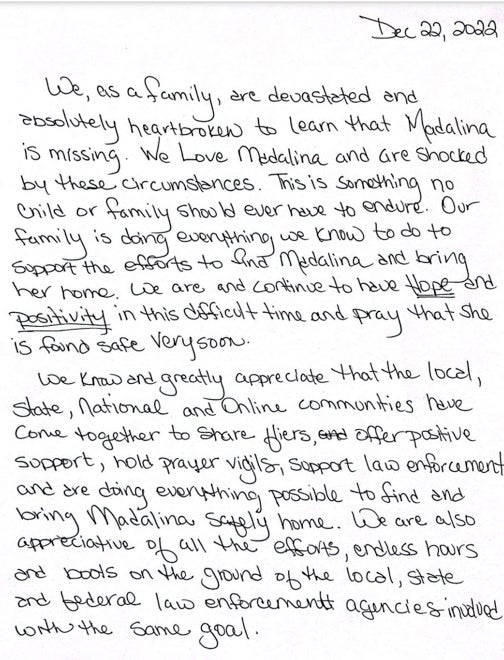 Dec 22, 2022
We, as a family, are devastated and
absolutely heartbroken to learn that Madalina
is missing. We Love Madalina and are shocked
by these circumstances. This is something no
child or family should ever have to endure. Our
family is doing everything we know to do to
support the efforts to find Madalina and bring
her home. We are and continue to have Hope and
positivity in this difficult time and pray that she
is found safe very soon.
We know and greatly appreciate that the local,
State, National and Online communities have
come together to share fliers, and offer positive
support, hold prayer vigils, support law enforcement
and are doing everything possible to find and
bring Madalina safely home. We are also
appreciative of all the efforts, endless hours
and boots on the ground of the local, state
and federal law enforcement agencies involved
with the same goal.